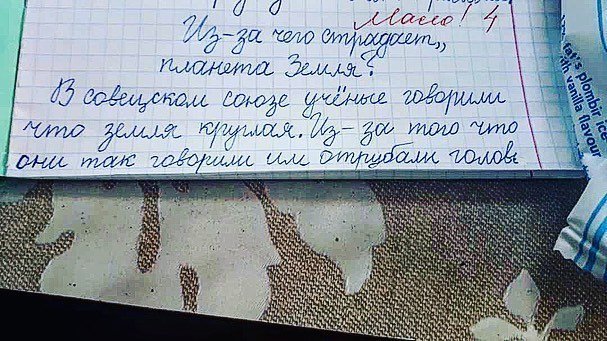 Мало! 4
Из-за чего страдает,,
планета Земля?
В совецском союзе учёные говорили
что земля круглая. Из-за того что
они так говорили им отрубали головы
's plombir ice
with vanilla flavour